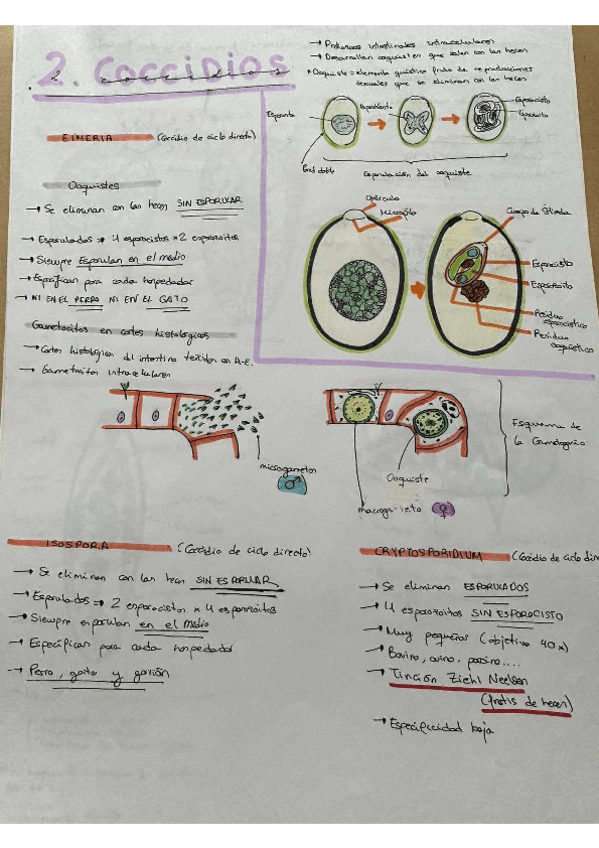 2. Coccidios
→ Protozoos intestinales intracelulares
→ Desarrollan ooquistes que salen con las heces
* Ooquiste = elemento quístico fruto de reproducciones
sexuales que se eliminan con las heces
Esporonte
Esporoblasto
Esporocisto
Esporozoito
Pared doble
Esporulación del ooquiste
EIMERIA (Coccidio de ciclo directo)
Ooquistes
→ Se eliminan con las heces SIN ESPORULAR
→ Esporulados → 4 esporocistos x 2 esporozoitos
→ Siempre Esporulan en el medio
→ Específicas para cada hospedador
→ NI EN EL PERRO NI EN EL GATO
Gametocitos en cortes histológicos
→ Cortes histológicos del intestino teñidos con H-E.
→ Gametocitos intracelulares
Opérculo
Micropilo
Cuerpo de Stieda
Esporocisto
Esporozoito
Residuo
esporocístico
Residuo
ooquístico
microgametos
♂
Ooquiste
macrogameto
♀
Esquema de
la Gametogonia
ISOSPORA (Coccidio de ciclo directo)
→ Se eliminan con las heces SIN ESPORULAR
→ Esporulados → 2 esporocistos x 4 esporozoitos
→ Siempre esporulan en el medio
→ Específicas para cada hospedador
→ Perro, gato y gorrión
CRYPTOSPORIDIUM (Coccidio de ciclo dir
→ Se eliminan ESPORULADOS
→ 4 esporozoitos SIN ESPOROCISTO
→ Muy pequeños (objetivo 40x)
→ Bovino, ovino, porcino....
→ Tinción Ziehl Neelsen
(frotis de heces)
→ Especificidad baja